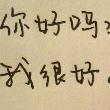 你好吗？
我很好。